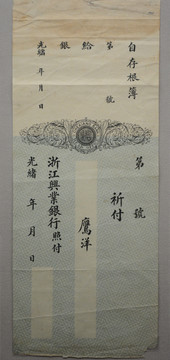 自存根簿
第 號
給
銀
光緒 年 月 日
第 號
祈付
鷹洋
浙江興業銀行照付
光緒 年 月 日